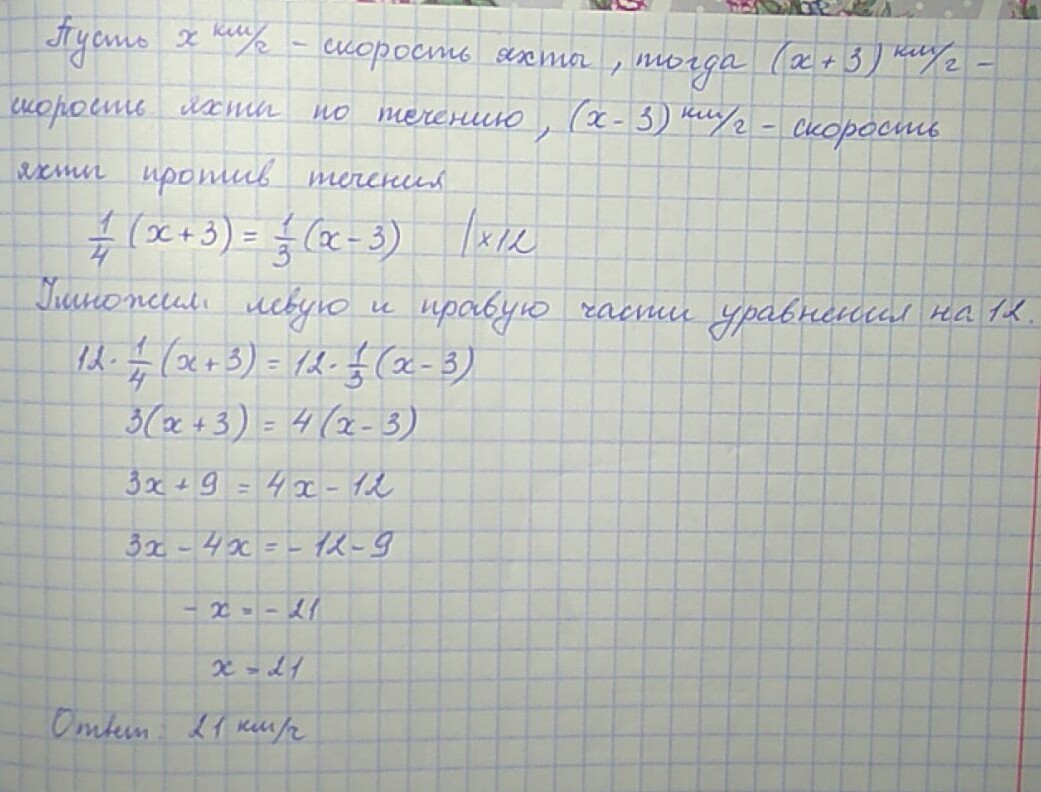 Пусть x км/г - скорость яхты, тогда (x + 3) км/г -
скорость яхты по течению, (x - 3) км/г - скорость
яхты против течения
1/4 (x + 3) = 1/3 (x - 3) | × 12
Умножим левую и правую части уравнения на 12.
12 · 1/4 (x + 3) = 12 · 1/3 (x - 3)
3(x + 3) = 4(x - 3)
3x + 9 = 4x - 12
3x - 4x = - 12 - 9
- x = - 21
x = 21
Ответ: 21 км/г